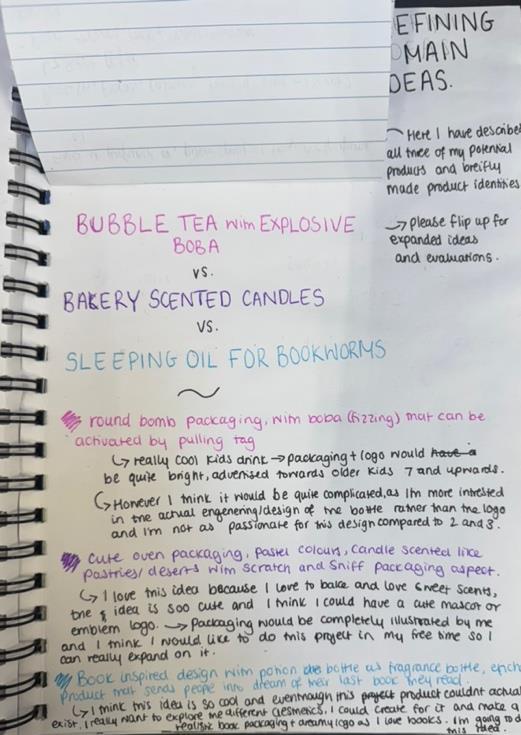 EFINING
MAIN
DEAS.
Here I have describe
all tree of my potential
products and breifly
made product identities
→ please flip up for
expanded ideas
and evaluations.
BUBBLE TEA with EXPLOSIVE
BOBA
vs.
BAKERY SCENTED CANDLES
VS.
SLEEPING OIL FOR BOOKWORMS
round bomb packaging, with boba (fizzing) that can be
activated by pulling tag
↳ really cool kids drink → packaging + logo would have a
be quite bright, advertised towards older kids 7 and upwards.
↳ However I think it would be quite complicated, as I'm more intrested
in the actual engenering/design of the bottle rather than the logo
and I'm not as passionate for this design compared to 2 and 3.
cute oven packaging, pastel colours, candle scented like
pastries/deserts with scratch and sniff packaging aspect.
↳ I love this idea because I love to bake and love sweet scents,
the idea is soo cute and I think I could have a cute mascot or
emblem logo. → Packaging would be completely illustrated by me
and I think I would like to do this project in my free time so I
can really expand on it.
Book inspired design with potion bottle as fragrance bottle,
product that sends people into dream of their last book they read.
↳ I think this idea is so cool and eventhough this project product couldnt actual
exist, I really want to explore the different aesthetics, I could create for it and make a
realistic book packaging + dreamy logo as I love books. I'm going to d
this idea.